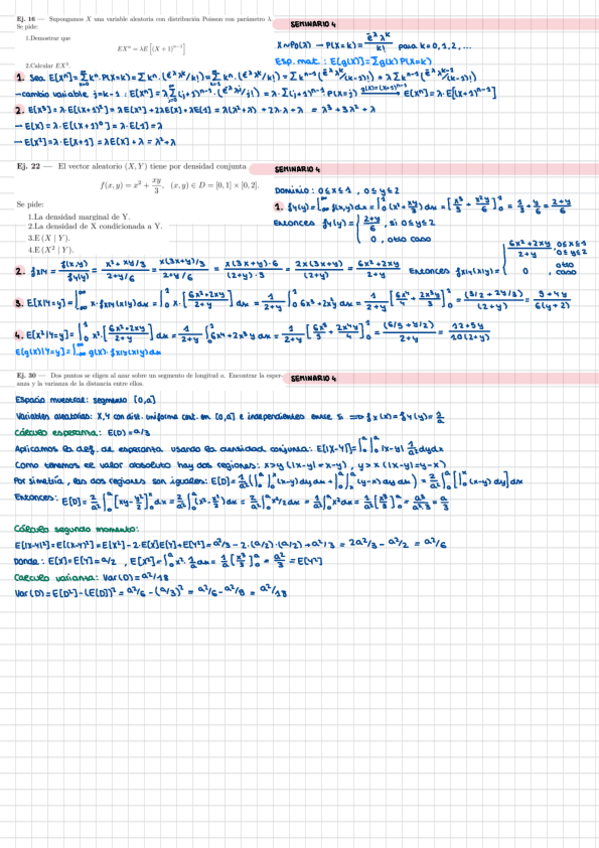 Ej. 16 — Supongamos X una variable aleatoria con distribución Poisson con parámetro λ.
Se pide:
1.Demostrar que
EXⁿ = λE[(X + 1)ⁿ⁻¹]
2.Calcular EX³.
SEMINARIO 4
X∼Po(λ) → P(X=k) = e^-λ λ^k / k! para k=0,1,2,...
Esp. mat.: E[g(X)] = Σg(k)P(X=k)
1. Sea E[Xⁿ] = Σ kⁿ·P(X=k) = Σ kⁿ·(e^-λ λ^k/k!) = Σ kⁿ·(e^-λ λ^k/k!) = Σ kⁿ⁻¹(e^-λ λ^k/(k-1)!) = λ Σ kⁿ⁻¹(e^-λ λ^k-1/(k-1)!)
→cambio variable j=k-1: E[Xⁿ] = λ Σ (j+1)ⁿ⁻¹·(e^-λ λ^j/j!) = λ·Σ(j+1)ⁿ⁻¹ P(X=j) g(X)=(X+1)ⁿ⁻¹ → E[Xⁿ] = λ·E[(X+1)ⁿ⁻¹]
2. E[X³] = λ·E[(X+1)²] = λE[X²] + 2λE[X] + λE[1] = λ(λ²+λ) + 2λ·λ + λ = λ³ + 3λ² + λ
→ E[X] = λ·E[(X+1)⁰] = λ·E[1] = λ
→ E[X²] = λ·E[X+1] = λE[X] + λ = λ² + λ
Ej. 22 — El vector aleatorio (X, Y) tiene por densidad conjunta
f(x, y) = x² + xy/3, (x, y) ∈ D = [0, 1] × [0, 2].
Se pide:
1.La densidad marginal de Y.
2.La densidad de X condicionada a Y.
3.E (X | Y).
4.E (X² | Y).
SEMINARIO 4
Dominio: 0≤x≤1, 0≤y≤2
1. fy(y) = ∫ f(x,y)dx = ∫₀¹ (x² + xy/3) dx = [x³/3 + x²y/6]₀¹ = 1/3 + y/6 = 2+y/6
Entonces fy(y) = { 2+y/6, si 0≤y≤2
0, otro caso
2. fx|y = f(x,y)/f(y) = x²+xy/3 / 2+y/6 = x(3x+y)/3 / 2+y/6 = x(3x+y)·6 / (2+y)·3 = 2x(3x+y)/(2+y) = 6x²+2xy/2+y Entonces fx|y(x|y) = { 6x²+2xy/2+y, 0≤x≤1 0≤y≤2
0, otro caso
3. E[X|Y=y] = ∫ x·fx|y(x|y)dx = ∫₀¹ x·[6x²+2xy/2+y] dx = 1/2+y ∫₀¹ 6x³+2x²y dx = 1/2+y [6x⁴/4 + 2x³y/3]₀¹ = (3/2+2y/3)/(2+y) = 9+4y/6(y+2)
4. E[X²|Y=y] = ∫₀¹ x²·[6x²+2xy/2+y] dx = 1/2+y ∫₀¹ 6x⁴+2x³y dx = 1/2+y [6x⁵/5 + 2x⁴y/4]₀¹ = (6/5+y/2)/2+y = 12+5y/10(2+y)
E[g(X)|Y=y] = ∫ g(x)·fx|y(x|y)dx
Ej. 30 — Dos puntos se eligen al azar sobre un segmento de longitud a. Encontrar la esper-
anza y la varianza de la distancia entre ellos.
SEMINARIO 4
Espacio muestral: segmento [0,a]
Variables aleatorias: X,Y con dist. uniforme cont. en [0,a] e independientes entre sí ⟹ fx(x) = fy(y) = 1/a
Cálculo esperanza: E(D) = a/3
Aplicamos la def. de esperanza usando la densidad conjunta: E[|X-Y|] = ∫₀ᵃ∫₀ᵃ |x-y| 1/a² dydx
Como tenemos el valor absoluto hay dos regiones: x>y (|x-y|=x-y), y>x (|x-y|=y-x)
Por simetría, las dos regiones son iguales: E[D] = 1/a² (∫₀ᵃ∫₀ˣ(x-y)dydx + ∫₀ᵃ∫ₓᵃ(y-x)dydx) = 2/a² ∫₀ᵃ[∫₀ˣ(x-y)dy]dx
Entonces: E[D] = 2/a² ∫₀ᵃ [xy - y²/2]₀ˣ dx = 2/a² ∫₀ᵃ (x² - x²/2) dx = 2/a² ∫₀ᵃ x²/2 dx = 1/a² ∫₀ᵃ x² dx = 1/a² [x³/3]₀ᵃ = a³/a²·3 = a/3
Cálculo segundo momento:
E[|X-Y|²] = E[(X-Y)²] = E[X²] - 2·E[X]E[Y] + E[Y²] = a²/3 - 2·(a/2)·(a/2) + a²/3 = 2a²/3 - a²/2 = a²/6
Donde: E[X] = E[Y] = a/2, E[X²] = ∫₀ᵃ x²·1/a dx = 1/a [x³/3]₀ᵃ = a²/3 = E[Y²]
Cálculo varianza: Var(D) = a²/18
Var(D) = E[D²] - (E[D])² = a²/6 - (a/3)² = a²/6 - a²/9 = a²/18